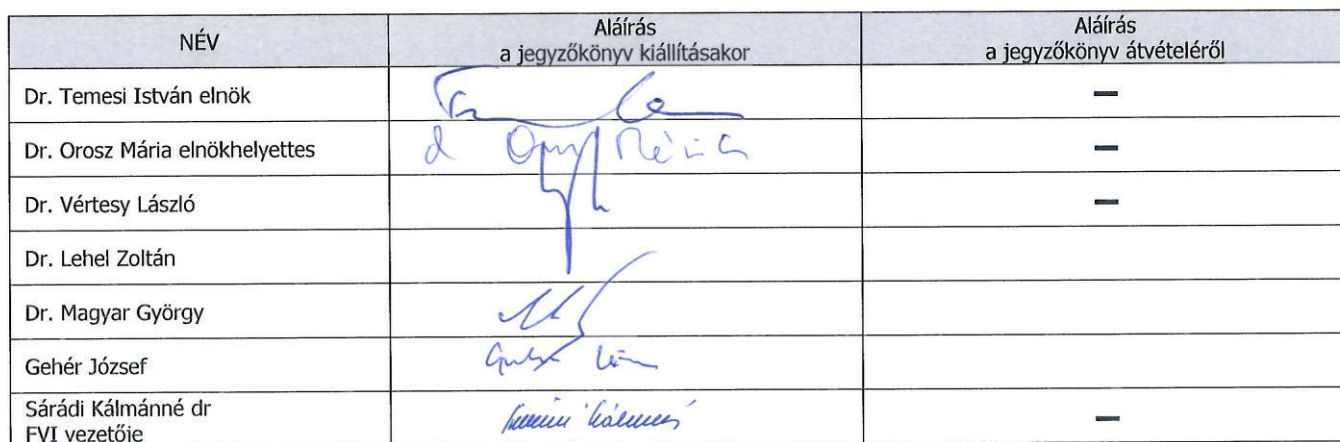 NÉV
Aláírás
a jegyzőkönyv kiállításakor
Aláírás
a jegyzőkönyv átvételéről
Dr. Temesi István elnök
–
Dr. Orosz Mária elnökhelyettes
–
Dr. Vértesy László
–
Dr. Lehel Zoltán
Dr. Magyar György
Gehér József
Sárádi Kálmánné dr
FVI vezetője
–